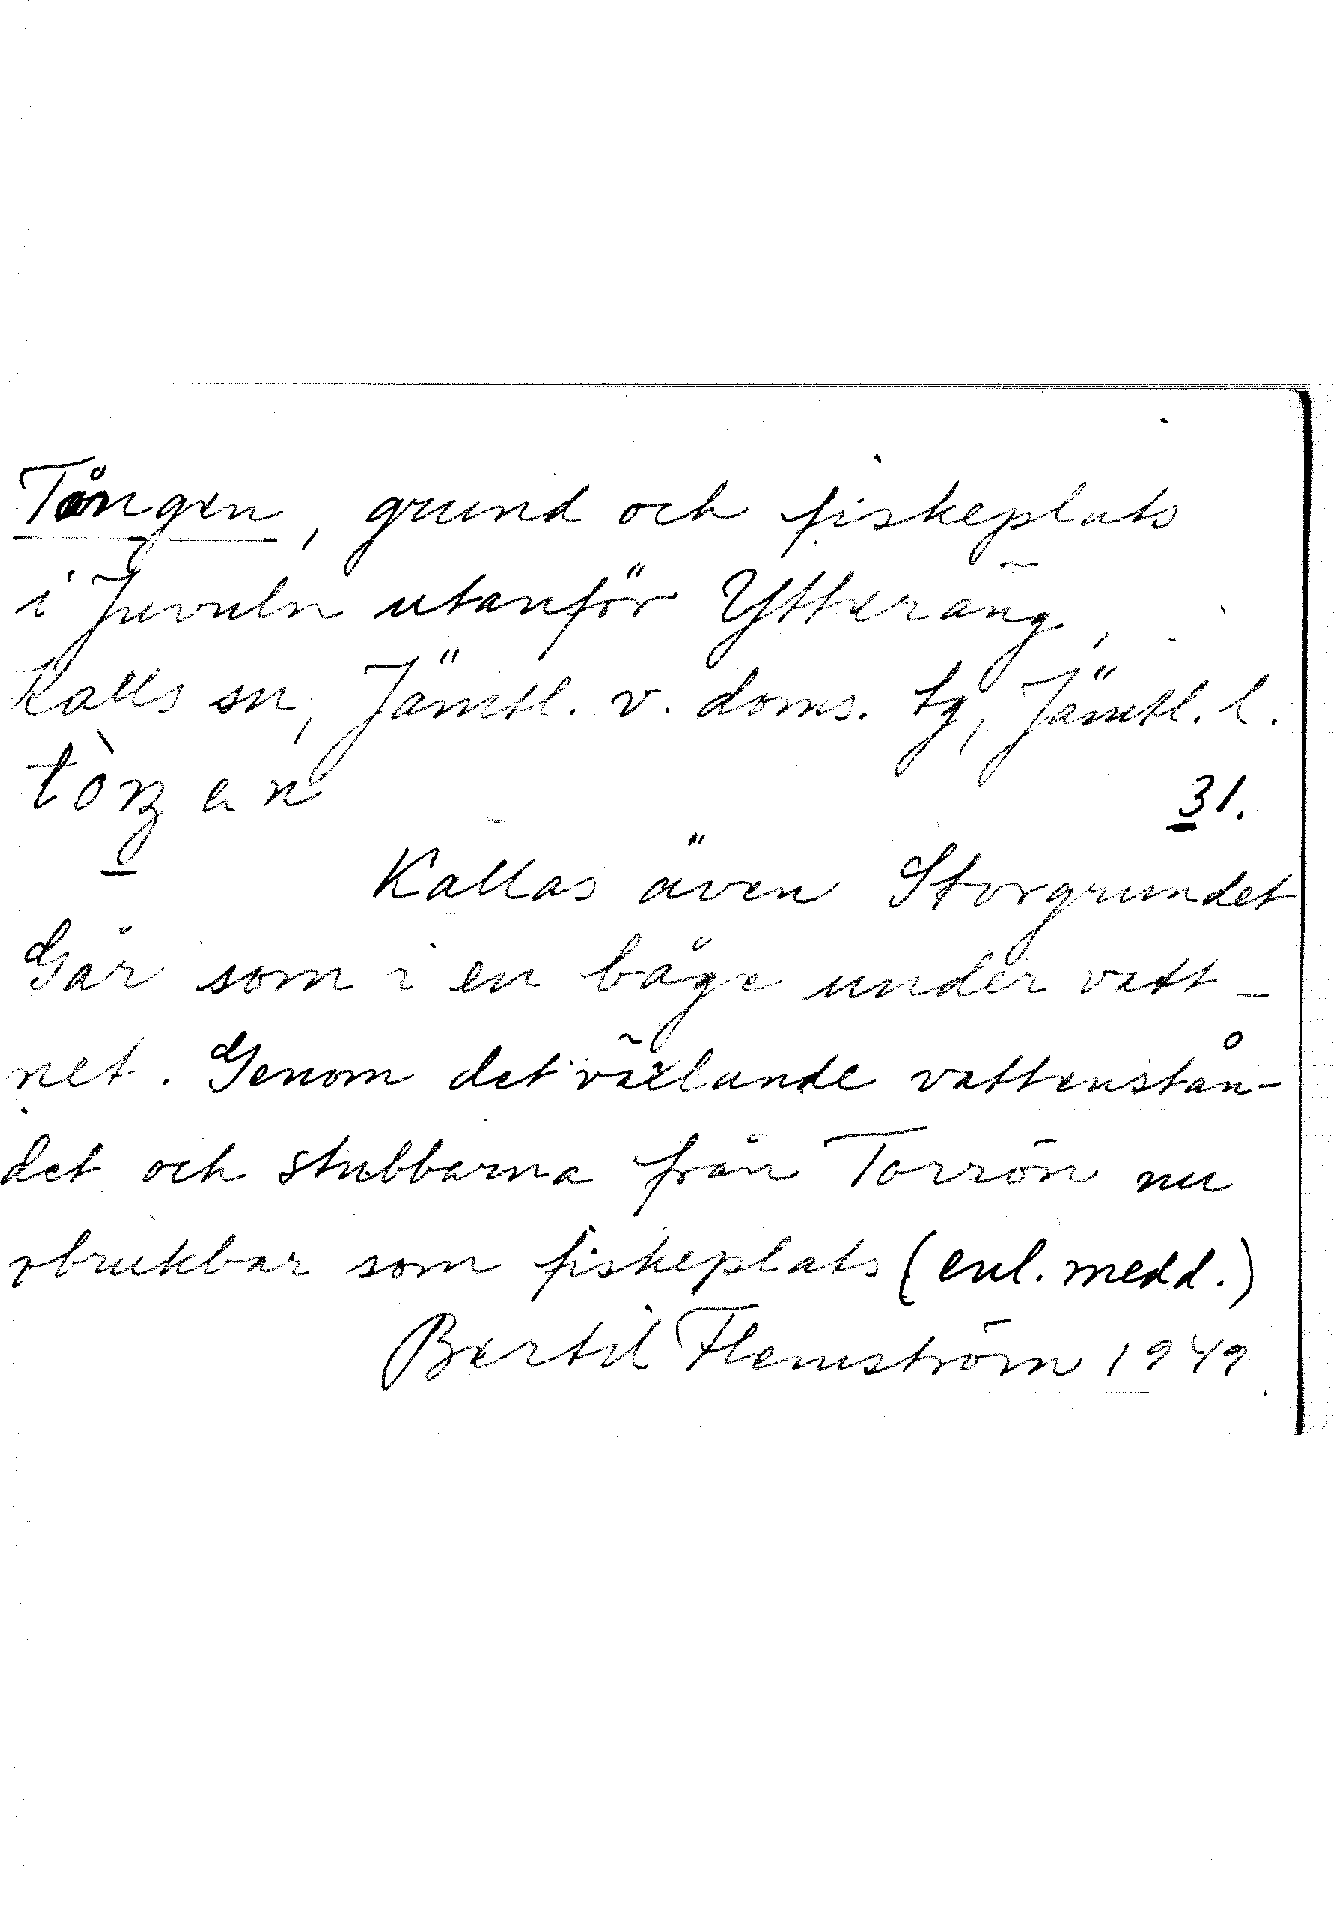 Tången, grund och fiskeplats
i Juvuln utanför Ytteräng,
Kalls sn, Jämtl. v. doms. tg, Jämtl. l.
31.
Kallas även Storgrundet
Går som i en båge under vatt-
net. Genom det växlande vattenstån-
det och stubbarna från Torrön nu
obrukbar som fiskeplats (enl. medd.)
Bertil Flemström 1949